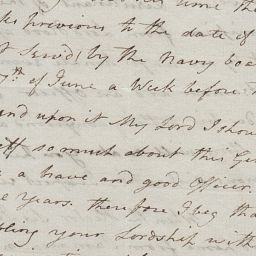 time tha
ks previous to the date of
Serv'd by the Navy boa
th of June a Week before
and upon it My Lord I shou
self so much about this Gen
a brave and good Officer
e years. therefore I beg tha
bling your Lordship with
in the